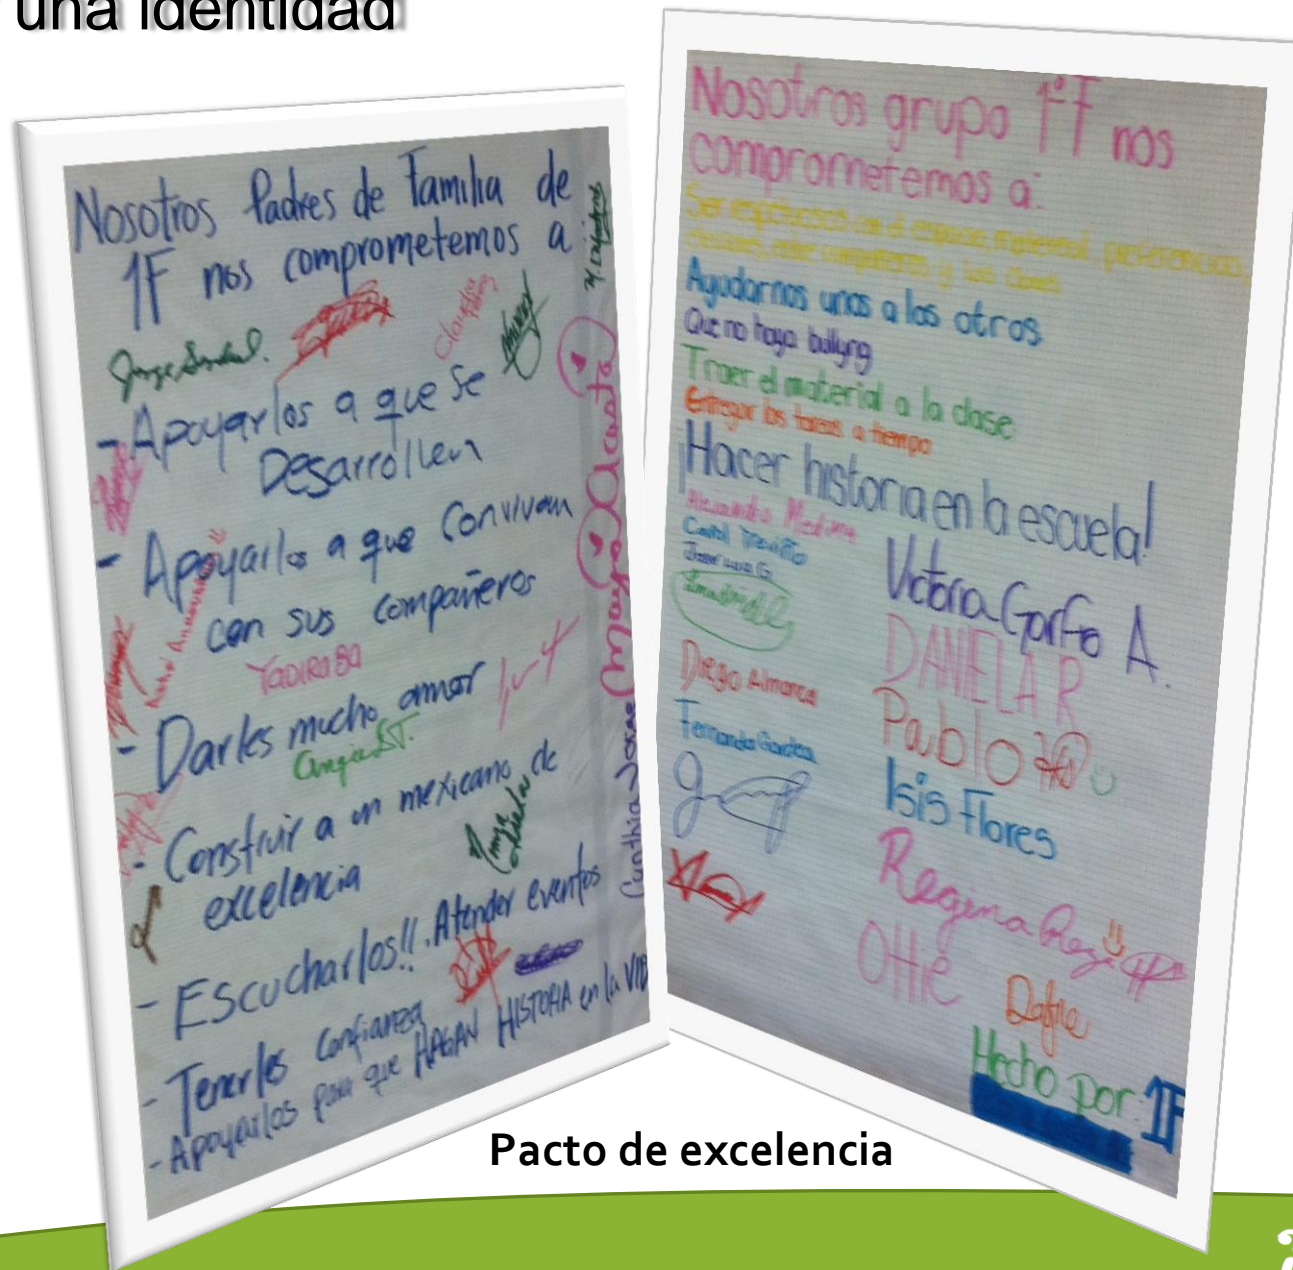 una identidad
Nosotros Padres de Familia de
1F nos comprometemos a
y Defafro
Claudia
Jorge
- Apoyarlos a que se
Desarrollen
- Apoyarlos a que Convivan
con sus compañeros
YADIRA BA
- Darles mucho amor
Angie S.T.
- Construir a un mexicano de
excelencia
- Escucharlos!!. Atender eventos
- Tenerles Confianza
- Apoyarlos para que HAGAN HISTORIA en la VID
Cynthia Jorge Mayo Acosta
Nosotros grupo 1ºF nos
comprometemos a:
Ser respetuosos con el espacio, material, preferencias,
entre compañeros y las clases
Ayudarnos unos a los otros
Que no haya bullyng
Traer el material a la clase
Entregar las tareas a tiempo
¡Hacer historia en la escuela!
Alejandro Medina
Carol Treviño
Jose Luis G.
Diego Almarca
Fernanda Gardea
Victoria Garfio A.
DANIELA R
Pablo
Isis Flores
Regina Rey
Ottie
Dafne
Hecho por: 1F
Pacto de excelencia